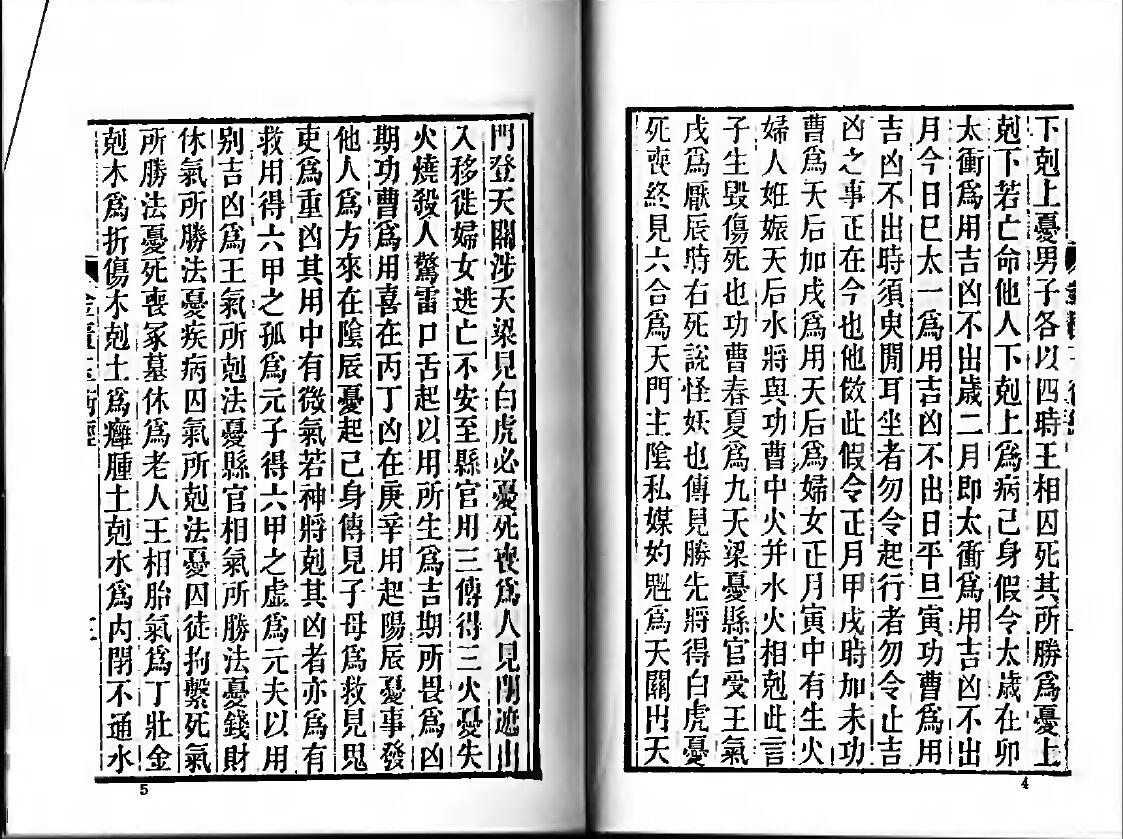 下剋上憂男子各以四時王相囚死其所勝為憂上
剋下若亡命他人下剋上為病己身假令太歲在卯
太衝為用吉凶不出歲二月即太衝為用吉凶不出
月今日巳太一為用吉凶不出日平旦寅功曹為用
吉凶不出時須臾閒耳坐者勿令起行者勿令止吉
凶之事正在今也他倣此假令正月甲戌時加未功
曹為天后加戌為用天后為婦女正月寅中有生火
婦人姙娠天后水將與功曹中火并水火相剋此言
子生毀傷死也功曹春夏為九天梁憂縣官受王氣
戌為厭辰時右死說怪妖也傳見勝先將得白虎憂
死喪終見六合為天門主陰私媒妁魁為天關出天
4
門登天關涉天梁見白虎必憂死喪為人見閉遮出
入移徙婦女逃亡不安至縣官用三傳得三火憂失
火燒殺人驚雷口舌起以用所生為吉期所畏為凶
期功曹為用喜在丙丁凶在庚辛用起陽辰憂事發
他人為方來在陰辰憂起己身傳見子母為救見鬼
吏為重凶其用中有微氣若神將剋其凶者亦為有
救用得六甲之孤為元子得六甲之虛為元夫以用
別吉凶為王氣所剋法憂縣官相氣所勝法憂錢財
休氣所勝法憂疾病囚氣所剋法憂囚徒拘繫死氣
所勝法憂死喪冢墓休為老人王相胎氣為丁壯金
剋木為折傷木剋土為癰腫土剋水為內閉不通水
金匱玉衡經
5